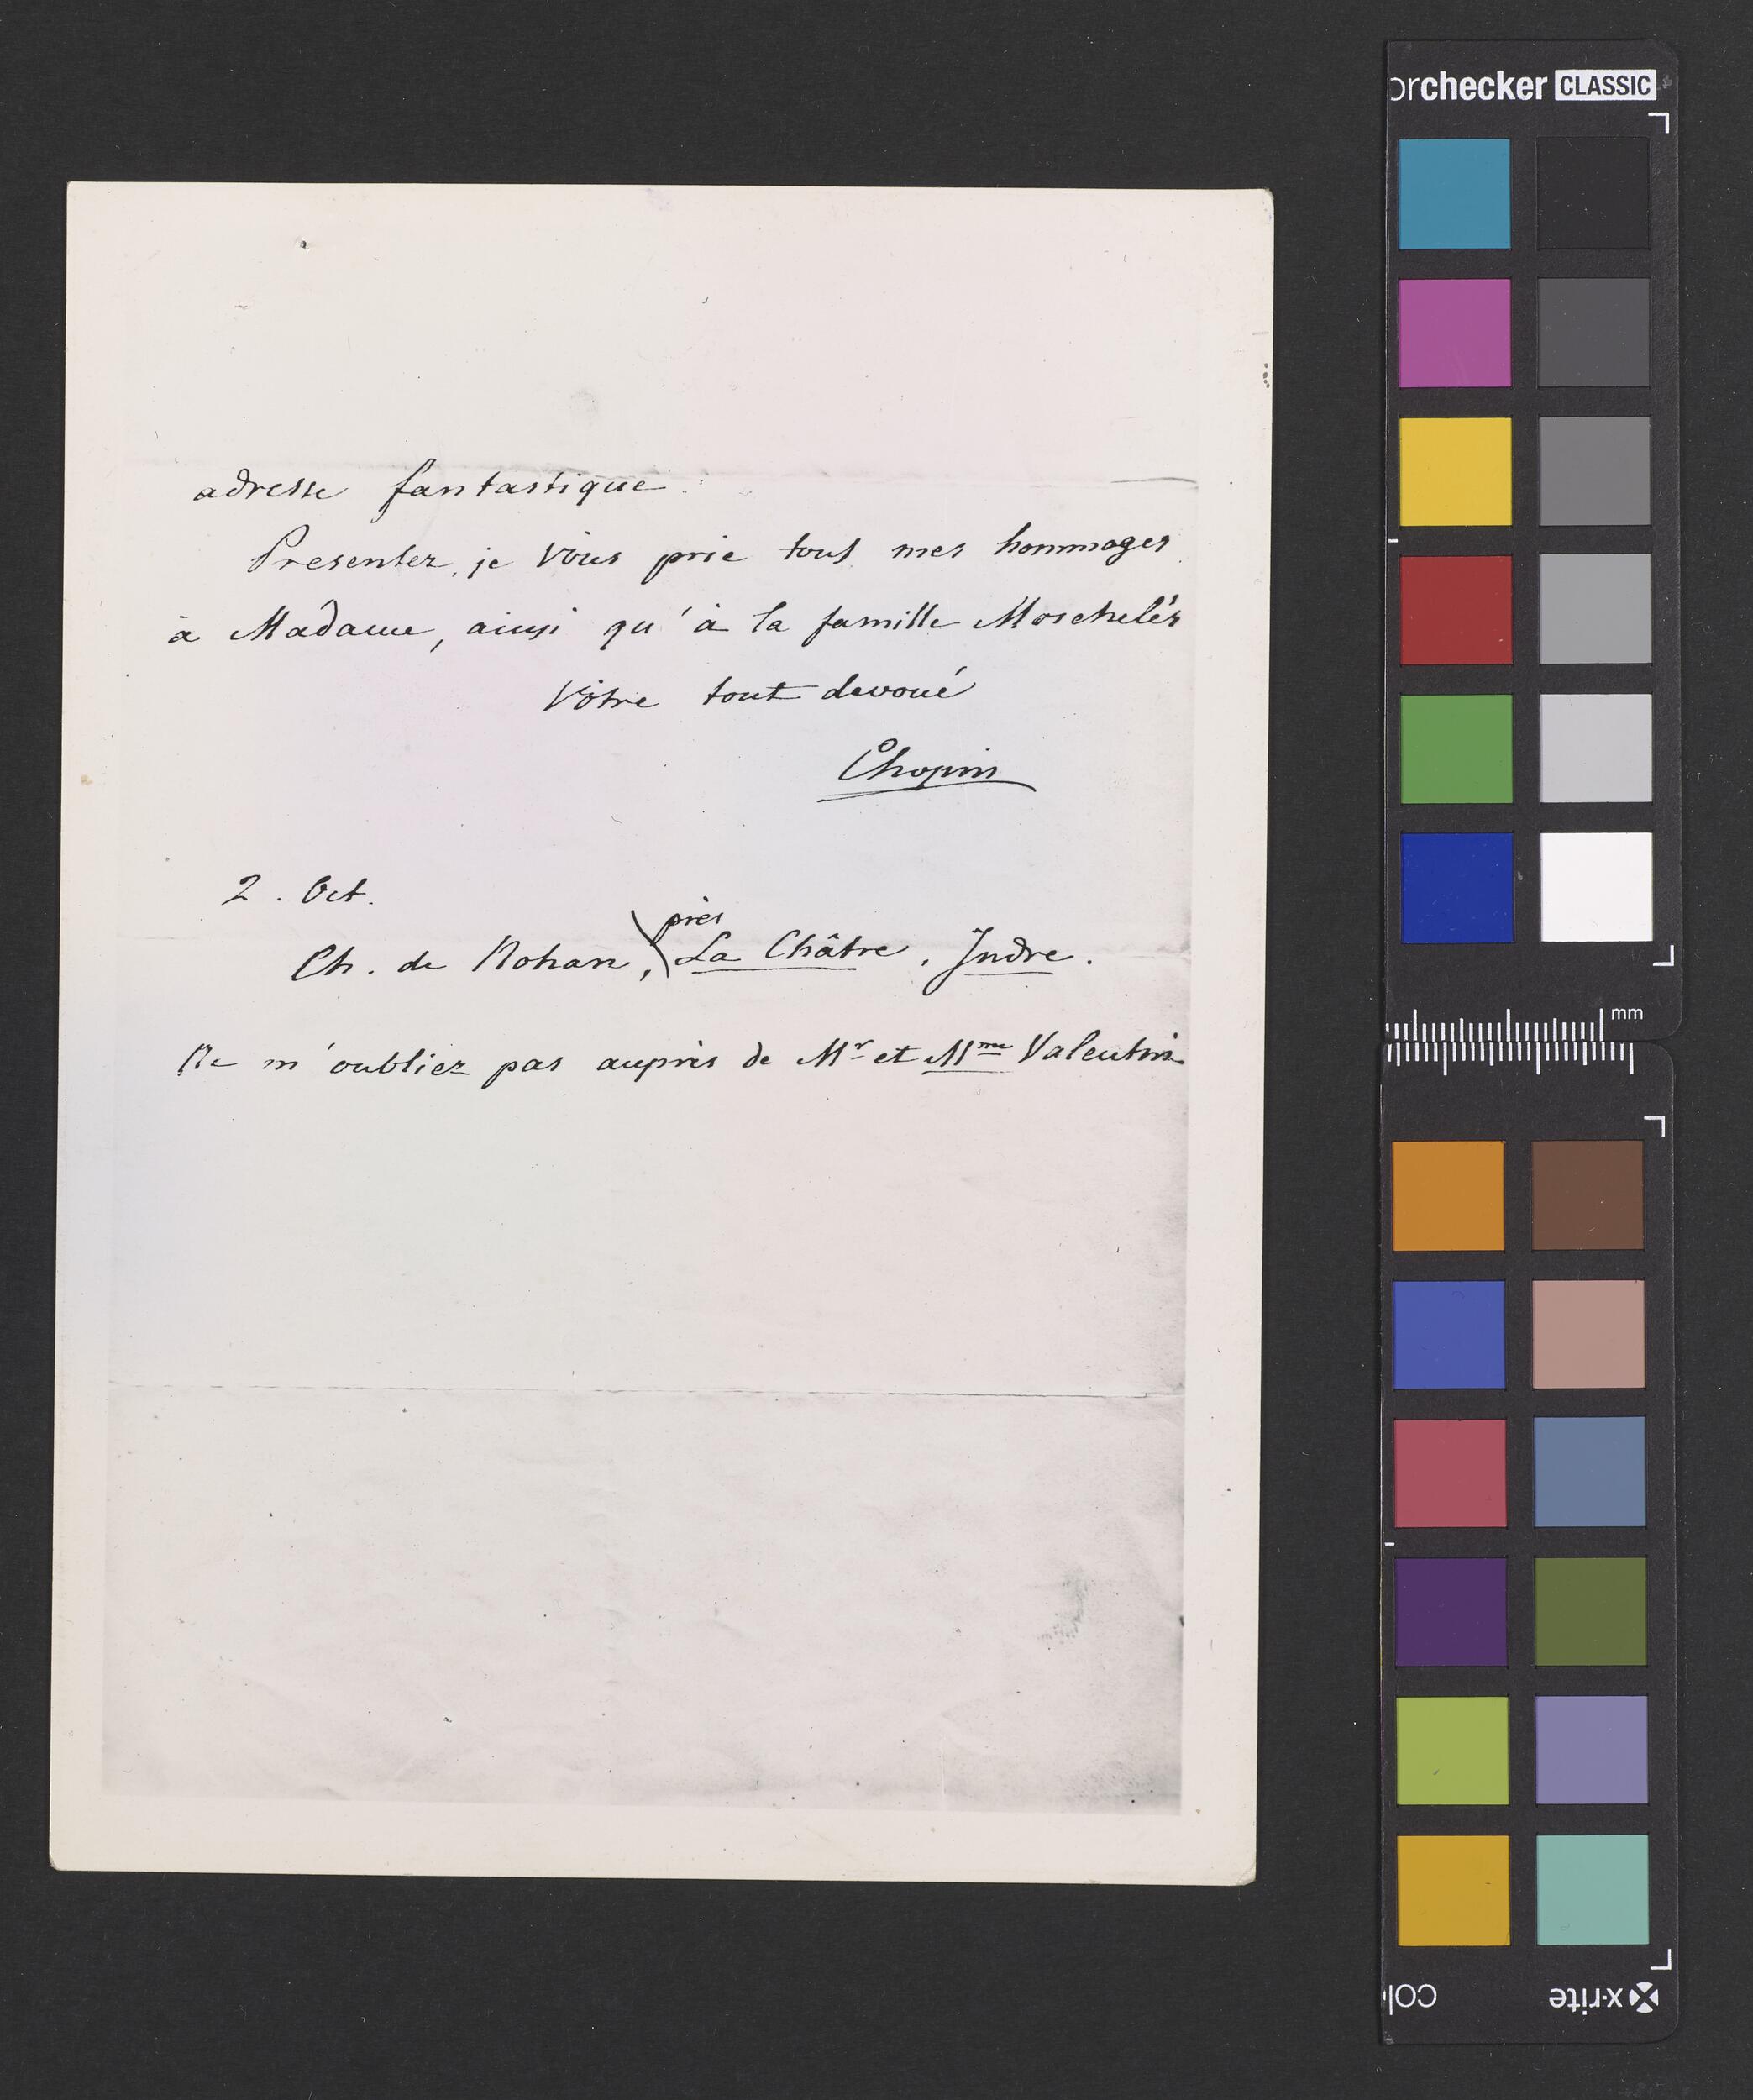 adresse fantastique.
Presentez, je Vous prie tous mes hommages
à Madame, ainsi qu'à la famille Moschelès
Votre tout devoué
Chopin
2. Oct.
près
Ch. de Nohan, La Châtre, Indre.
Ne m'oubliez pas auprès de Mr et Mme Valentin
orchecker CLASSIC
mm
x·rite
col